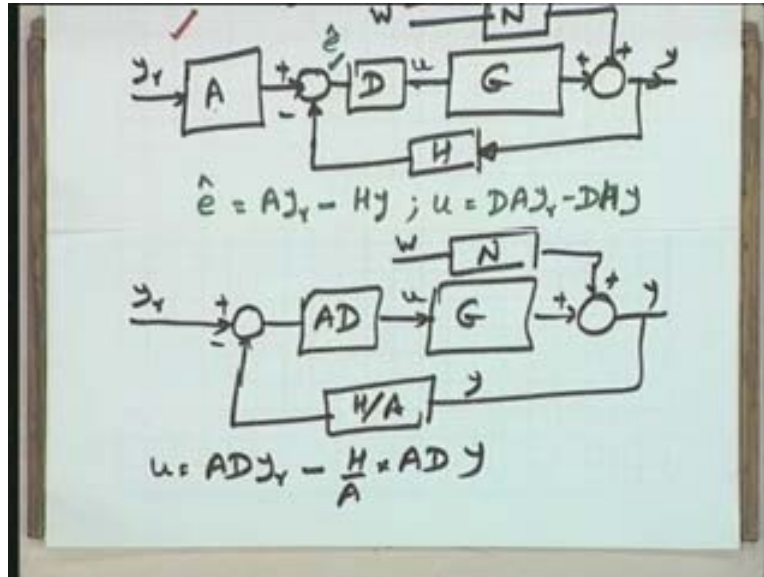 W N
ê
y_r A + - D u G + + y
H
ê = Ay_r - Hy ; u = DAy_r - DHy
W N
y_r + - AD u G + + y
H/A y
u = ADy_r - H/A × AD y